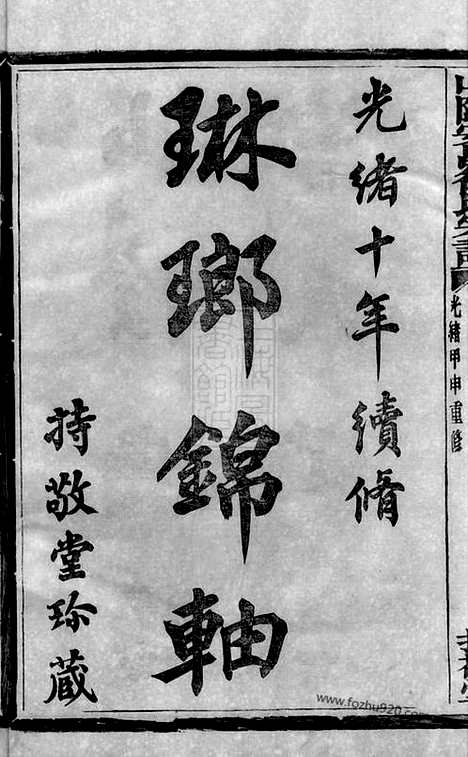 光緒十年續脩
琳瑯錦軸
持敬堂珎蔵
光緒甲申重修
www.fozhu920.com